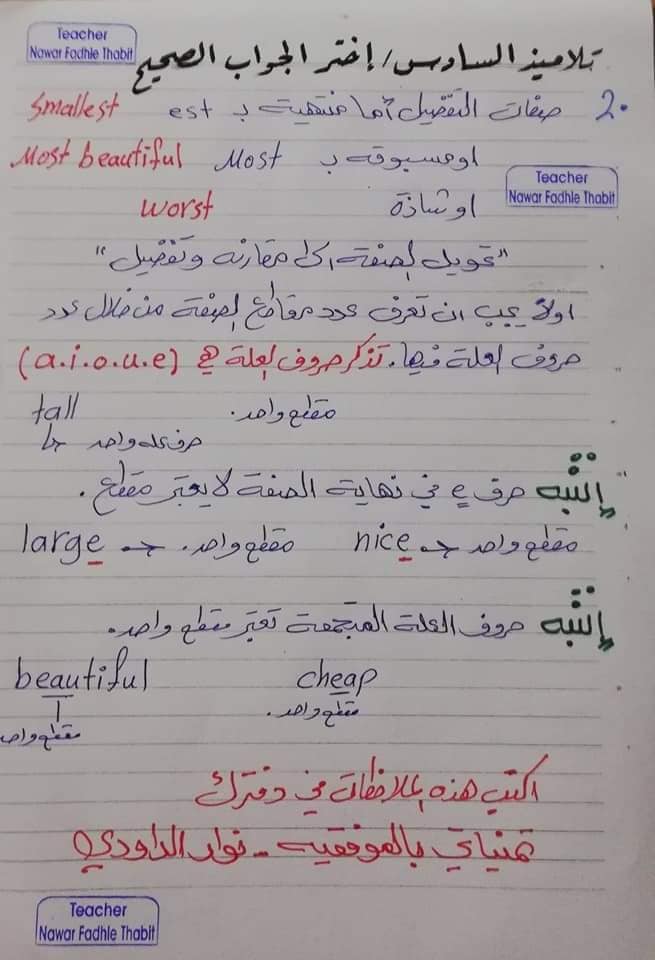 Teacher
Nawar Fadhle Thabit
تلاميذ السادس / إختر الجواب الصحيح
2. صفات التفضيل أما منتهية بـ est Smallest
او مسبوقه بـ Most Most beautiful
Teacher
Nawar Fadhle Thabit
او شاذة worst
"تحويل الصفة الى مقارنه وتفضيل"
اولاً يجب ان تعرف عدد مقاطع الصفة من خلال عدد
حروف العلة فيها. تذكر حروف العلة هي (a.i.o.u.e)
مقطع واحد. tall
حرف عله واحد
إنتبه حرف e في نهاية الصفة لا يعتبر مقطع.
مقطع واحد nice مقطع واحد. large
إنتبه حروف العلة المتجمعة تعتبر مقطع واحد.
cheap beautiful
مقطع واحد. مقطع واحد
اكتب هذه الملاحظات في دفترك
تمنياتي بالموفقيه - نوار الداودي
Teacher
Nawar Fadhle Thabit